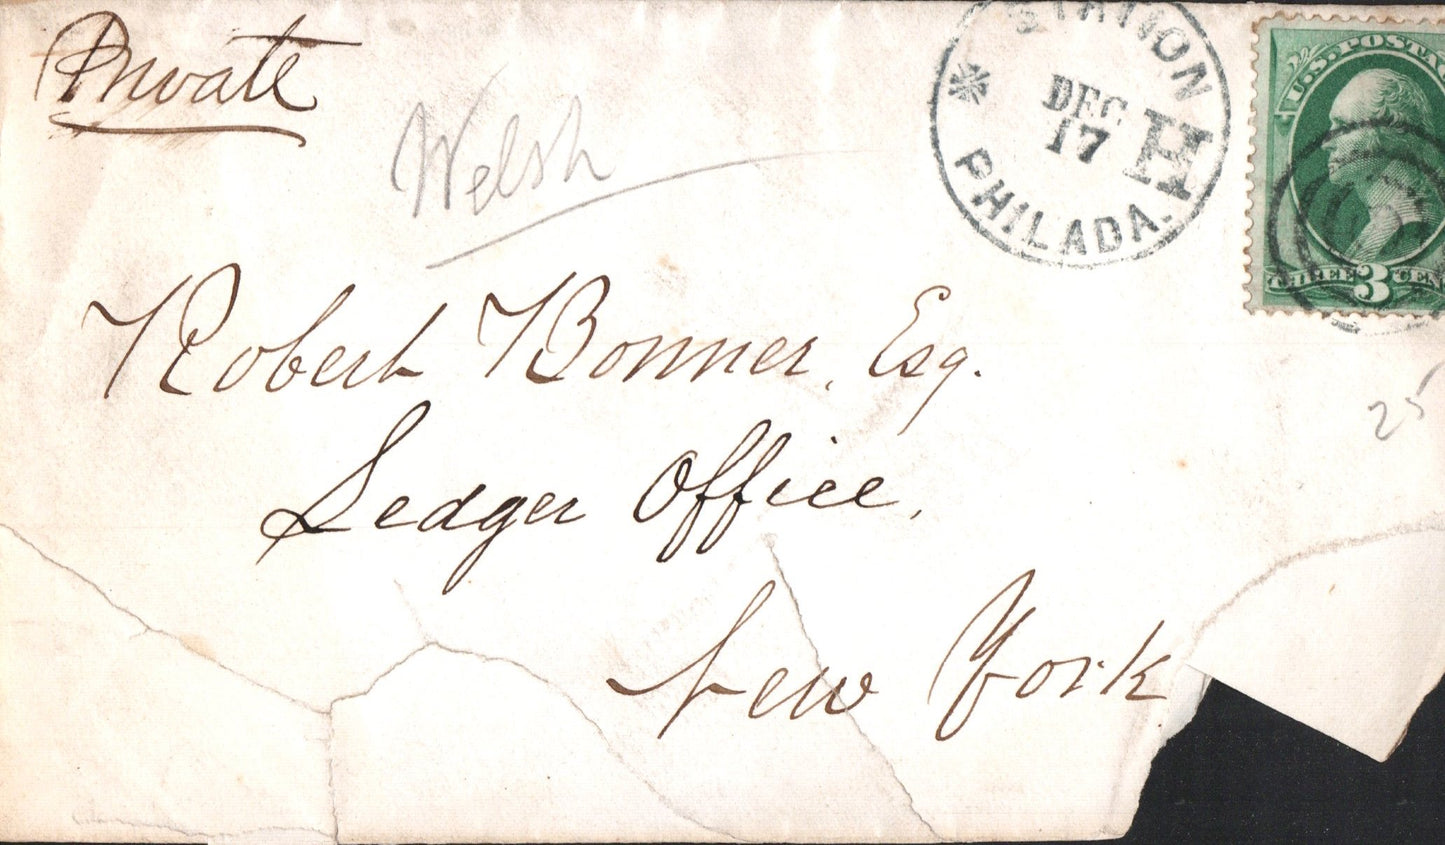 Private
Welsh
STATION H
DEC
17
PHILADA.
U.S. POSTA
THREE 3 CEN
Robert Bonner, Esq.
25
Ledger Office,
New York